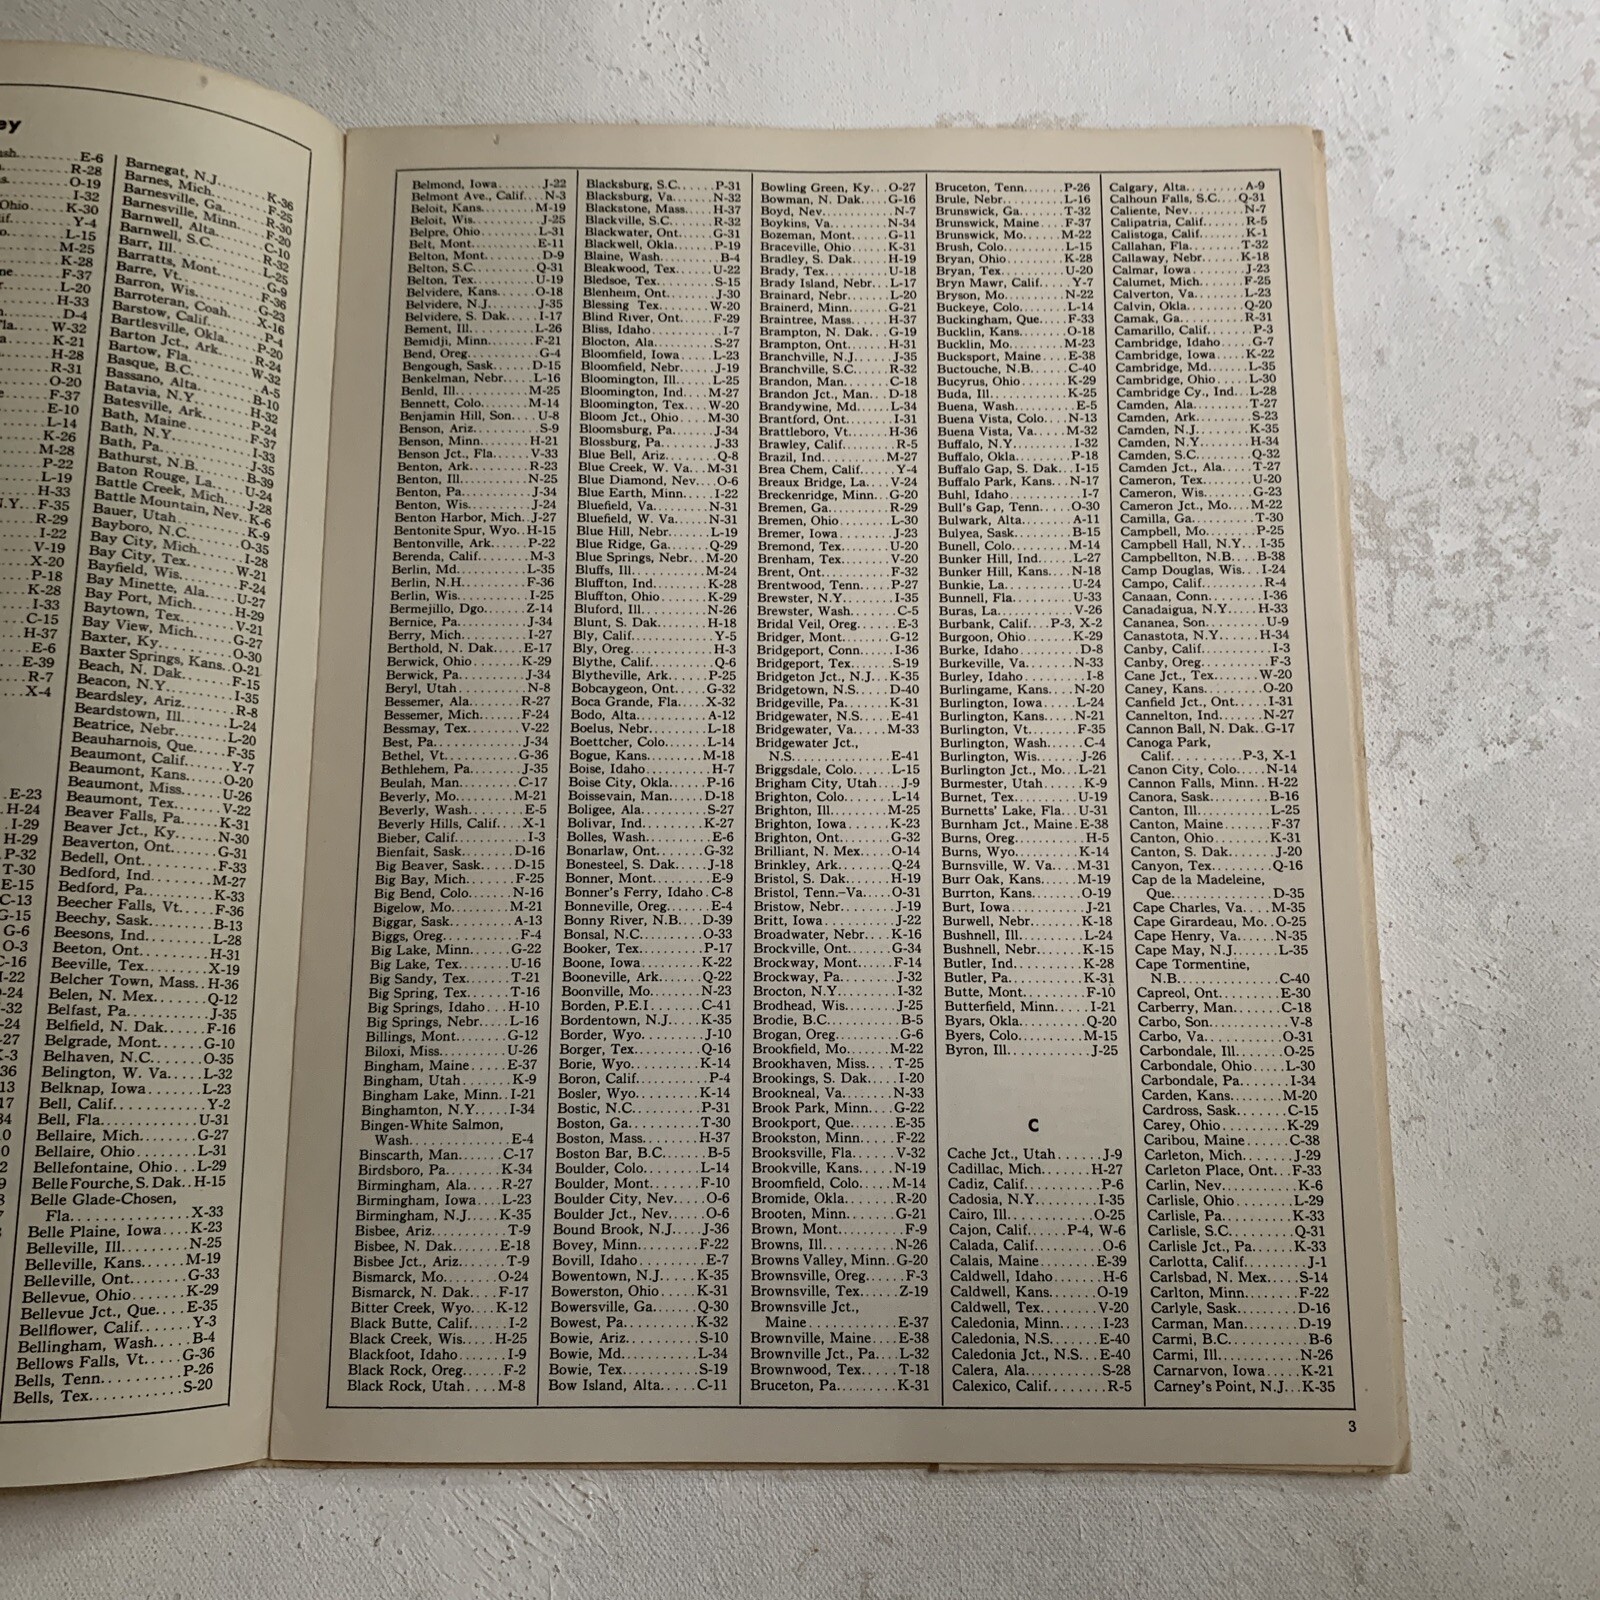 ey
E-6
R-28
O-19
I-32
Ohio.....K-30
Y-4
L-15
M-25
K-28
F-37
L-20
H-33
D-4
W-32
K-21
H-28
R-31
O-20
F-37
E-10
L-14
K-26
M-28
P-22
L-19
H-33
N.Y...F-35
R-29
I-22
V-19
X-20
P-18
K-28
I-33
C-15
H-37
E-6
E-39
R-7
X-4
E-23
H-24
I-29
H-29
P-32
T-30
E-15
C-13
G-15
G-6
O-3
C-16
Barnegat, N.J.......K-36
Barnes, Mich.......F-25
Barnesville, Ga.....R-30
Barnesville, Minn...F-20
Barnwell, Alta......C-10
Barnwell, S.C.......R-32
Barr, Ill...........L-25
Barratts, Mont......G-9
Barre, Vt...........F-36
Barron, Wis.........G-23
Barroteran, Coah....X-16
Barstow, Calif......P-4
Bartlesville, Okla..P-20
Barton Jct., Ark....R-24
Bartow, Fla.........W-32
Basque, B.C.........A-5
Bassano, Alta.......B-10
Batavia, N.Y........H-32
Batesville, Ark.....P-24
Bath, Maine.........F-37
Bath, N.Y...........I-33
Bath, Pa............J-35
Bathurst, N.B.......B-39
Baton Rouge, La.....U-24
Battle Creek, Mich..J-28
Battle Mountain, Nev..K-6
Bauer, Utah.........K-9
Bayboro, N.C........O-35
Bay City, Mich......I-28
Bay City, Tex.......W-21
Bayfield, Wis.......F-24
Bay Minette, Ala....U-27
Bay Port, Mich......H-29
Baytown, Tex........V-21
Bay View, Mich......G-27
Baxter, Ky..........O-30
Baxter Springs, Kans..O-21
Beach, N. Dak.......F-15
Beacon, N.Y.........I-35
Beardsley, Ariz.....R-8
Beardstown, Ill.....L-24
Beatrice, Nebr......L-20
Beauharnois, Que....F-35
Beaumont, Calif.....Y-7
Beaumont, Kans......O-20
Beaumont, Miss......U-26
Beaumont, Tex.......V-22
Beaver Falls, Pa....K-31
Beaver Jct., Ky.....N-30
Beaverton, Ont......G-31
Bedell, Ont.........F-33
Bedford, Ind........M-27
Bedford, Pa.........K-33
Beecher Falls, Vt...F-36
Beechy, Sask........B-13
Beesons, Ind........L-28
Beeton, Ont.........H-31
Beeville, Tex.......X-19
Belcher Town, Mass..H-36
Belen, N. Mex.......Q-12
Belfast, Pa.........J-35
Belfield, N. Dak....F-16
Belgrade, Mont......G-10
Belhaven, N.C.......O-35
Belington, W. Va....L-32
Belknap, Iowa.......L-23
Bell, Calif.........Y-2
Bell, Fla...........U-31
Bellaire, Mich......G-27
Bellaire, Ohio......L-31
Bellefontaine, Ohio...L-29
Belle Fourche, S. Dak..H-15
Belle Glade-Chosen,
Fla.................X-33
Belle Plaine, Iowa....K-23
Belleville, Ill.....N-25
Belleville, Kans....M-19
Belleville, Ont.....G-33
Bellevue, Ohio......K-29
Bellevue Jct., Que....E-35
Bellflower, Calif...Y-3
Bellingham, Wash....B-4
Bellows Falls, Vt...G-36
Bells, Tenn.........P-26
Bells, Tex..........S-20
Belmond, Iowa.......J-22
Belmont Ave., Calif...N-3
Beloit, Kans........M-19
Beloit, Wis.........J-25
Belpre, Ohio........L-31
Belt, Mont..........E-11
Belton, Mont........D-9
Belton, S.C.........Q-31
Belton, Tex.........U-19
Belvidere, Kans.....O-18
Belvidere, N.J......J-35
Belvidere, S. Dak...I-17
Bement, Ill.........L-26
Bemidji, Minn.......F-21
Bend, Oreg..........G-4
Bengough, Sask......D-15
Benkelman, Nebr.....L-16
Benld, Ill..........M-25
Bennett, Colo.......M-14
Benjamin Hill, Son....U-8
Benson, Ariz........S-9
Benson, Minn........H-21
Benson Jct., Fla....V-33
Benton, Ark.........R-23
Benton, Ill.........N-25
Benton, Pa..........J-34
Benton, Wis.........J-24
Benton Harbor, Mich..J-27
Bentonite Spur, Wyo..H-15
Bentonville, Ark....P-22
Berenda, Calif......M-3
Berlin, Md..........L-35
Berlin, N.H.........F-36
Berlin, Wis.........I-25
Bermejillo, Dgo.....Z-14
Bernice, Pa.........J-34
Berry, Mich.........I-27
Berthold, N. Dak....E-17
Berwick, Ohio.......K-29
Berwick, Pa.........J-34
Beryl, Utah.........N-8
Bessemer, Ala.......R-27
Bessemer, Mich......F-24
Bessmay, Tex........V-22
Best, Pa............J-34
Bethel, Vt..........G-36
Bethlehem, Pa.......J-35
Beulah, Man.........C-17
Beverly, Mo.........M-21
Beverly, Wash.......E-5
Beverly Hills, Calif....X-1
Bieber, Calif.......I-3
Bienfait, Sask......D-16
Big Beaver, Sask....D-15
Big Bay, Mich.......F-25
Big Bend, Colo......N-16
Bigelow, Mo.........M-21
Biggar, Sask........A-13
Biggs, Oreg.........F-4
Big Lake, Minn......G-22
Big Lake, Tex.......U-16
Big Sandy, Tex......T-21
Big Spring, Tex.....T-16
Big Springs, Idaho...H-10
Big Springs, Nebr....L-16
Billings, Mont......G-12
Biloxi, Miss........U-26
Bingham, Maine......E-37
Bingham, Utah.......K-9
Bingham Lake, Minn..I-21
Binghamton, N.Y.....I-34
Bingen-White Salmon,
Wash................E-4
Binscarth, Man......C-17
Birdsboro, Pa.......K-34
Birmingham, Ala.....R-27
Birmingham, Iowa....L-23
Birmingham, N.J.....K-35
Bisbee, Ariz........T-9
Bisbee, N. Dak......E-18
Bisbee Jct., Ariz...T-9
Bismarck, Mo........O-24
Bismarck, N. Dak....F-17
Bitter Creek, Wyo...K-12
Black Butte, Calif....I-2
Black Creek, Wis....H-25
Blackfoot, Idaho....I-9
Black Rock, Oreg....F-2
Black Rock, Utah....M-8
Blacksburg, S.C.....P-31
Blacksburg, Va......N-32
Blackstone, Mass....H-37
Blackville, S.C.....R-32
Blackwater, Ont.....G-31
Blackwell, Okla.....P-19
Blaine, Wash........B-4
Bleakwood, Tex......U-22
Bledsoe, Tex........S-15
Blenheim, Ont.......J-30
Blessing Tex........W-20
Blind River, Ont....F-29
Bliss, Idaho........I-7
Blocton, Ala........S-27
Bloomfield, Iowa....L-23
Bloomfield, Nebr....J-19
Bloomington, Ill....L-25
Bloomington, Ind....M-27
Bloomington, Tex....W-20
Bloom Jct., Ohio....M-30
Bloomsburg, Pa......J-34
Blossburg, Pa.......J-33
Blue Bell, Ariz.....Q-8
Blue Creek, W. Va...M-31
Blue Diamond, Nev...O-6
Blue Earth, Minn....I-22
Bluefield, Va.......N-31
Bluefield, W. Va....N-31
Blue Hill, Nebr.....L-19
Blue Ridge, Ga......Q-29
Blue Springs, Nebr...M-20
Bluffs, Ill.........M-24
Bluffton, Ind.......K-28
Bluffton, Ohio......K-29
Bluford, Ill........N-26
Blunt, S. Dak.......H-18
Bly, Calif..........Y-5
Bly, Oreg...........H-3
Blythe, Calif.......Q-6
Blytheville, Ark....P-25
Bobcaygeon, Ont.....G-32
Boca Grande, Fla....X-32
Bodo, Alta..........A-12
Boelus, Nebr........L-18
Boettcher, Colo.....L-14
Bogue, Kans.........M-18
Boise, Idaho........H-7
Boise City, Okla....P-16
Boissevain, Man.....D-18
Boligee, Ala........S-27
Bolivar, Ind........K-27
Bolles, Wash........E-6
Bonarlaw, Ont.......G-32
Bonesteel, S. Dak...J-18
Bonner, Mont........E-9
Bonner's Ferry, Idaho.C-8
Bonneville, Oreg....E-4
Bonny River, N.B....D-39
Bonsal, N.C.........O-33
Booker, Tex.........P-17
Boone, Iowa.........K-22
Booneville, Ark.....Q-22
Boonville, Mo.......N-23
Borden, P.E.I.......C-41
Bordentown, N.J.....K-35
Border, Wyo.........J-10
Borger, Tex.........Q-16
Borie, Wyo..........K-14
Boron, Calif........P-4
Bosler, Wyo.........K-14
Bostic, N.C.........P-31
Boston, Ga..........T-30
Boston, Mass........H-37
Boston Bar, B.C.....B-5
Boulder, Colo.......L-14
Boulder, Mont.......F-10
Boulder City, Nev...O-6
Boulder Jct., Nev...O-6
Bound Brook, N.J....J-36
Bovey, Minn.........F-22
Bovill, Idaho.......E-7
Bowentown, N.J......K-35
Bowerston, Ohio.....K-31
Bowersville, Ga.....Q-30
Bowest, Pa..........K-32
Bowie, Ariz.........S-10
Bowie, Md...........L-34
Bowie, Tex..........S-19
Bow Island, Alta....C-11
Bowling Green, Ky...O-27
Bowman, N. Dak......G-16
Boyd, Nev...........N-7
Boykins, Va.........N-34
Bozeman, Mont.......G-11
Braceville, Ohio....K-31
Bradley, S. Dak.....H-19
Brady, Tex..........U-18
Brady Island, Nebr...L-17
Brainard, Nebr......L-20
Brainerd, Minn......G-21
Braintree, Mass.....H-37
Brampton, N. Dak....G-19
Brampton, Ont.......H-31
Branchville, N.J....J-35
Branchville, S.C....R-32
Brandon, Man........C-18
Brandon Jct., Man...D-18
Brandywine, Md......L-34
Brantford, Ont......I-31
Brattleboro, Vt.....H-36
Brawley, Calif......R-5
Brazil, Ind.........M-27
Brea Chem, Calif....Y-4
Breaux Bridge, La...V-24
Breckenridge, Minn..G-20
Bremen, Ga..........R-29
Bremen, Ohio........L-30
Bremer, Iowa........J-23
Bremond, Tex........U-20
Brenham, Tex........V-20
Brent, Ont..........F-32
Brentwood, Tenn.....P-27
Brewster, N.Y.......I-35
Brewster, Wash......C-5
Bridal Veil, Oreg...E-3
Bridger, Mont.......G-12
Bridgeport, Conn....I-36
Bridgeport, Tex.....S-19
Bridgeton Jct., N.J...K-35
Bridgetown, N.S.....D-40
Bridgeville, Pa.....K-31
Bridgewater, N.S....E-41
Bridgewater, Va.....M-33
Bridgewater Jct.,
N.S.................E-41
Briggsdale, Colo....L-15
Brigham City, Utah...J-9
Brighton, Colo......L-14
Brighton, Ill.......M-25
Brighton, Iowa......K-23
Brighton, Ont.......G-32
Brilliant, N. Mex...O-14
Brinkley, Ark.......Q-24
Bristol, S. Dak.....H-19
Bristol, Tenn.–Va...O-31
Bristow, Nebr.......J-19
Britt, Iowa.........J-22
Broadwater, Nebr....K-16
Brockville, Ont.....G-34
Brockway, Mont......F-14
Brockway, Pa........J-32
Brocton, N.Y........I-32
Brodhead, Wis.......J-25
Brodie, B.C.........B-5
Brogan, Oreg........G-6
Brookfield, Mo......M-22
Brookhaven, Miss....T-25
Brookings, S. Dak...I-20
Brookneal, Va.......N-33
Brook Park, Minn....G-22
Brookport, Que......E-35
Brookston, Minn.....F-22
Brooksville, Fla....V-32
Brookville, Kans....N-19
Broomfield, Colo....M-14
Bromide, Okla.......R-20
Brooten, Minn.......G-21
Brown, Mont.........F-9
Browns, Ill.........N-26
Browns Valley, Minn..G-20
Brownsville, Oreg...F-3
Brownsville, Tex....Z-19
Brownsville Jct.,
Maine...............E-37
Brownville, Maine...E-38
Brownville Jct., Pa....L-32
Brownwood, Tex......T-18
Bruceton, Pa........K-31
Bruceton, Tenn......P-26
Brule, Nebr.........L-16
Brunswick, Ga.......T-32
Brunswick, Maine....F-37
Brunswick, Mo.......M-22
Brush, Colo.........L-15
Bryan, Ohio.........K-28
Bryan, Tex..........U-20
Bryn Mawr, Calif....Y-7
Bryson, Mo..........N-22
Buckeye, Colo.......L-14
Buckingham, Que.....F-33
Bucklin, Kans.......O-18
Bucklin, Mo.........M-23
Bucksport, Maine....E-38
Buctouche, N.B......C-40
Bucyrus, Ohio.......K-29
Buda, Ill...........K-25
Buena, Wash.........E-5
Buena Vista, Colo...N-13
Buena Vista, Va.....M-32
Buffalo, N.Y........I-32
Buffalo, Okla.......P-18
Buffalo Gap, S. Dak...I-15
Buffalo Park, Kans...N-17
Buhl, Idaho.........I-7
Bull's Gap, Tenn....O-30
Bulwark, Alta.......A-11
Bulyea, Sask........B-15
Bunell, Colo........M-14
Bunker Hill, Ind....L-27
Bunker Hill, Kans...N-18
Bunkie, La..........U-24
Bunnell, Fla........U-33
Buras, La...........V-26
Burbank, Calif....P-3, X-2
Burgoon, Ohio.......K-29
Burke, Idaho........D-8
Burkeville, Va......N-33
Burley, Idaho.......I-8
Burlingame, Kans....N-20
Burlington, Iowa....L-24
Burlington, Kans....N-21
Burlington, Vt......F-35
Burlington, Wash....C-4
Burlington, Wis.....J-26
Burlington Jct., Mo...L-21
Burmester, Utah.....K-9
Burnet, Tex.........U-19
Burnetts' Lake, Fla...U-31
Burnham Jct., Maine.E-38
Burns, Oreg.........H-5
Burns, Wyo..........K-14
Burnsville, W. Va...M-31
Burr Oak, Kans......M-19
Burrton, Kans.......O-19
Burt, Iowa..........J-21
Burwell, Nebr.......K-18
Bushnell, Ill.......L-24
Bushnell, Nebr......K-15
Butler, Ind.........K-28
Butler, Pa..........K-31
Butte, Mont.........F-10
Butterfield, Minn...I-21
Byars, Okla.........Q-20
Byers, Colo.........M-15
Byron, Ill..........J-25
C
Cache Jct., Utah....J-9
Cadillac, Mich......H-27
Cadiz, Calif........P-6
Cadosia, N.Y........I-35
Cairo, Ill..........O-25
Cajon, Calif......P-4, W-6
Calada, Calif.......O-6
Calais, Maine.......E-39
Caldwell, Idaho.....H-6
Caldwell, Kans......O-19
Caldwell, Tex.......V-20
Caledonia, Minn.....I-23
Caledonia, N.S......E-40
Caledonia Jct., N.S...E-40
Calera, Ala.........S-28
Calexico, Calif.....R-5
Calgary, Alta.......A-9
Calhoun Falls, S.C...Q-31
Caliente, Nev.......N-7
Calipatria, Calif...R-5
Calistoga, Calif....K-1
Callahan, Fla.......T-32
Callaway, Nebr......K-18
Calmar, Iowa........J-23
Calumet, Mich.......F-25
Calverton, Va.......L-23
Calvin, Okla........Q-20
Camak, Ga...........R-31
Camarillo, Calif....P-3
Cambridge, Idaho....G-7
Cambridge, Iowa.....K-22
Cambridge, Md.......L-35
Cambridge, Ohio.....L-30
Cambridge Cy., Ind...L-28
Camden, Ala.........T-27
Camden, Ark.........S-23
Camden, N.J.........K-35
Camden, N.Y.........H-34
Camden, S.C.........Q-32
Camden Jct., Ala....T-27
Cameron, Tex........U-20
Cameron, Wis........G-23
Cameron Jct., Mo....M-22
Camilla, Ga.........T-30
Campbell, Mo........P-25
Campbell Hall, N.Y...I-35
Campbellton, N.B....B-38
Camp Douglas, Wis...I-24
Campo, Calif........R-4
Canaan, Conn........I-36
Canadaigua, N.Y.....H-33
Cananea, Son........U-9
Canastota, N.Y......H-34
Canby, Calif........I-3
Canby, Oreg.........F-3
Cane Jct., Tex......W-20
Caney, Kans.........O-20
Canfield Jct., Ont....I-31
Cannelton, Ind......N-27
Cannon Ball, N. Dak..G-17
Canoga Park,
Calif.............P-3, X-1
Canon City, Colo....N-14
Cannon Falls, Minn..H-22
Canora, Sask........B-16
Canton, Ill.........L-25
Canton, Maine.......F-37
Canton, Ohio........K-31
Canton, S. Dak......J-20
Canyon, Tex.........Q-16
Cap de la Madeleine,
Que.................D-35
Cape Charles, Va....M-35
Cape Girardeau, Mo..O-25
Cape Henry, Va......N-35
Cape May, N.J.......L-35
Cape Tormentine,
N.B.................C-40
Capreol, Ont........E-30
Carberry, Man.......C-18
Carbo, Son..........V-8
Carbo, Va...........O-31
Carbondale, Ill.....O-25
Carbondale, Ohio....L-30
Carbondale, Pa......I-34
Carden, Kans........M-20
Cardross, Sask......C-15
Carey, Ohio.........K-29
Caribou, Maine......C-38
Carleton, Mich......J-29
Carleton Place, Ont...F-33
Carlin, Nev.........K-6
Carlisle, Ohio......L-29
Carlisle, Pa........K-33
Carlisle, S.C.......Q-31
Carlisle Jct., Pa...K-33
Carlotta, Calif.....J-1
Carlsbad, N. Mex....S-14
Carlton, Minn.......F-22
Carlyle, Sask.......D-16
Carman, Man.........D-19
Carmi, B.C..........B-6
Carmi, Ill..........N-26
Carnarvon, Iowa.....K-21
Carney's Point, N.J...K-35
3